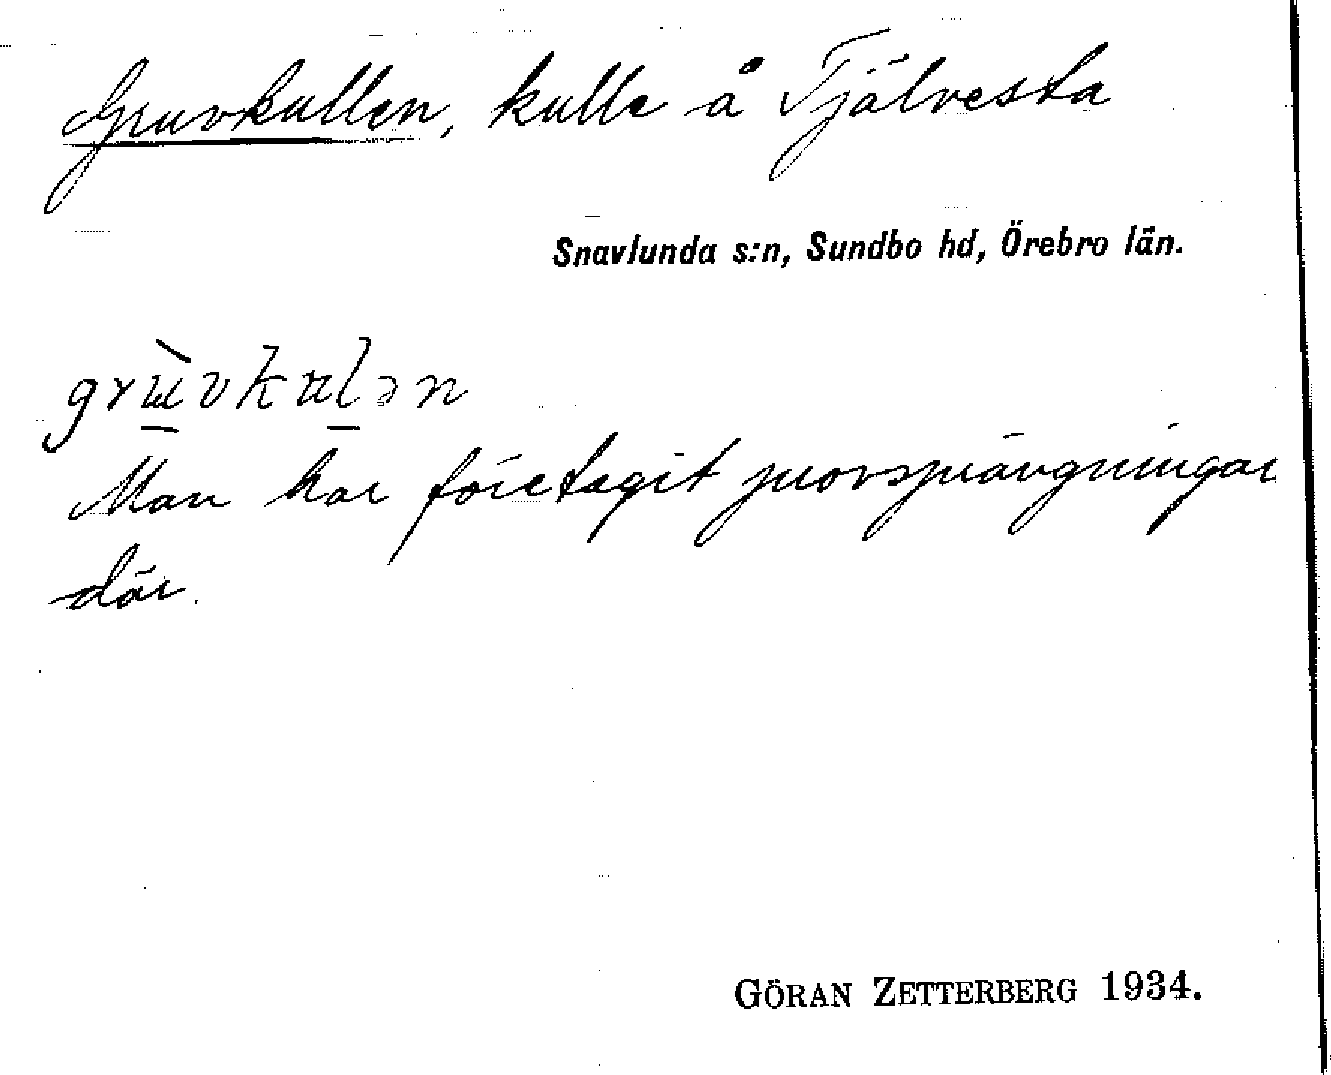 Gruvkullen, kulle å Tjälvesta
Snavlunda s:n, Sundbo hd, Örebro län.
grɯ̀vkulən
Man har företagit provsprängningar
där.
GÖRAN ZETTERBERG 1934.